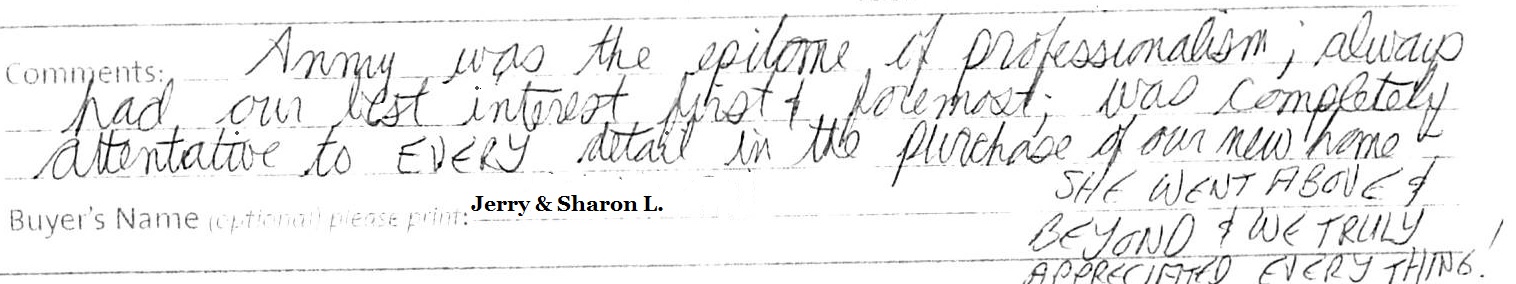 Comments: Anmy was the epitome of professionalism; always
had our best interest first & foremost; was completely
attentative to EVERY detail in the purchase of our new home
SHE WENT ABOVE &
Buyer's Name (optional) please print: Jerry & Sharon L.
BEYOND & WE TRULY
APPRECIATED EVERYTHING!